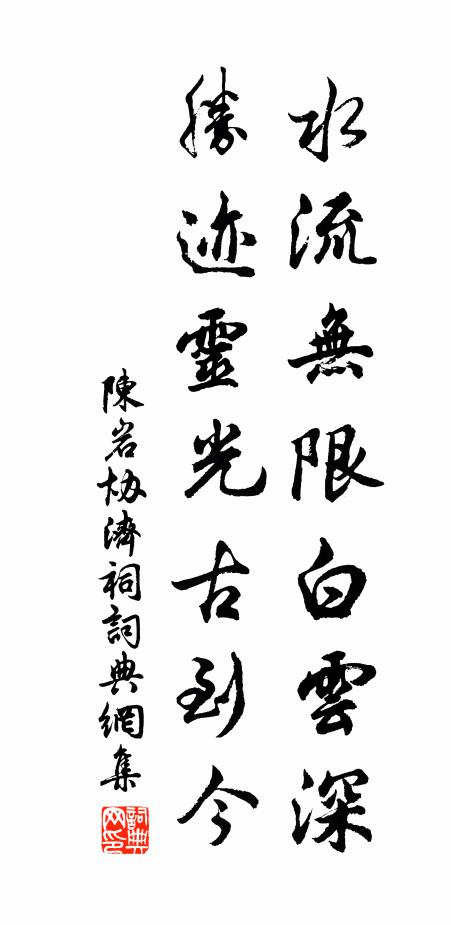 水流無限白雲深
勝迹靈光古到今
陳岩協濟祠詞典網集
詞典
网印